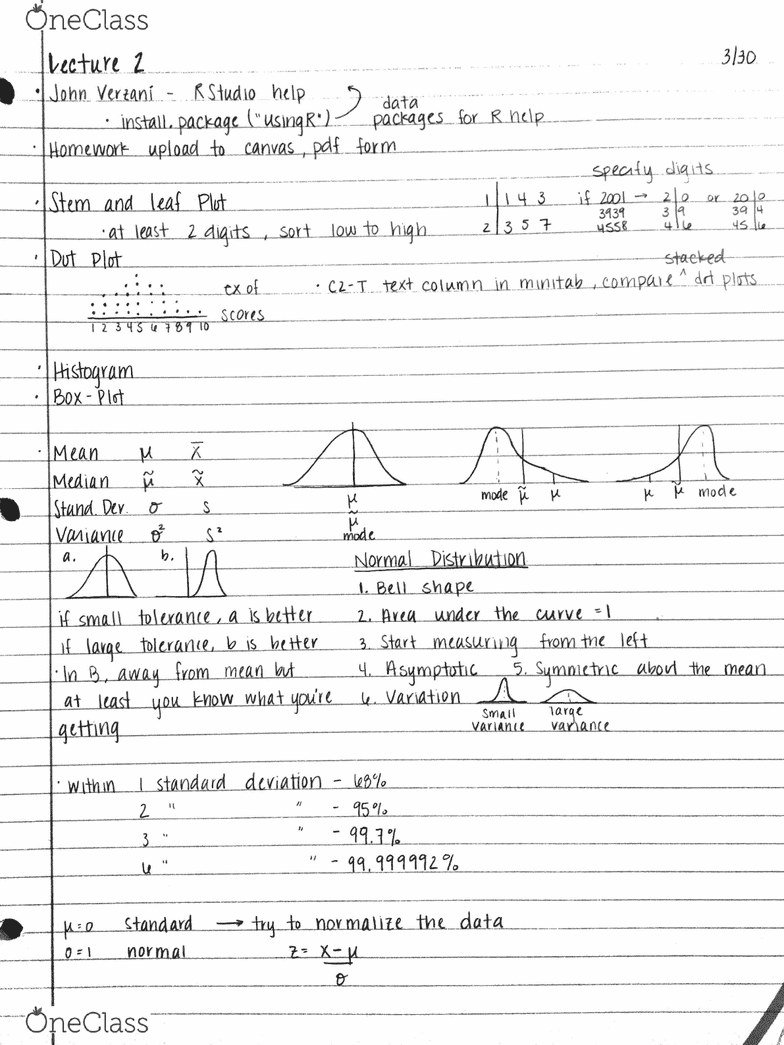 OneClass
Lecture 2 3/30
· John Verzani - RStudio help
· install.package ("UsingR") data packages for R help
· Homework upload to canvas, pdf form
specify digits
· Stem and leaf Plot 1 | 1 4 3 if 2001 → 2|0 or 20|0
3939 3|9 39|4
· at least 2 digits, sort low to high 2 | 3 5 7 4558 4|6 45|6
· Dot Plot stacked
ex of · C2-T text column in minitab, compare ^ dot plots
1 2 3 4 5 6 7 8 9 10 scores
· Histogram
· Box-Plot
· Mean μ x̄
Median μ̃ x̃ mode μ̃ μ μ μ̃ mode
Stand. Dev. σ s μ
μ̃
Variance σ² s² mode
a. b. Normal Distribution
1. Bell shape
if small tolerance, a is better 2. Area under the curve = 1
if large tolerance, b is better 3. Start measuring from the left
· In B, away from mean but 4. Asymptotic 5. Symmetric about the mean
at least you know what you're 6. Variation small variance large variance
getting
· within 1 standard deviation - 68%
2 " " - 95%
3 " " - 99.7%
6 " " - 99.999992%
μ=0 standard → try to normalize the data
σ=1 normal z = x-μ
σ
OneClass